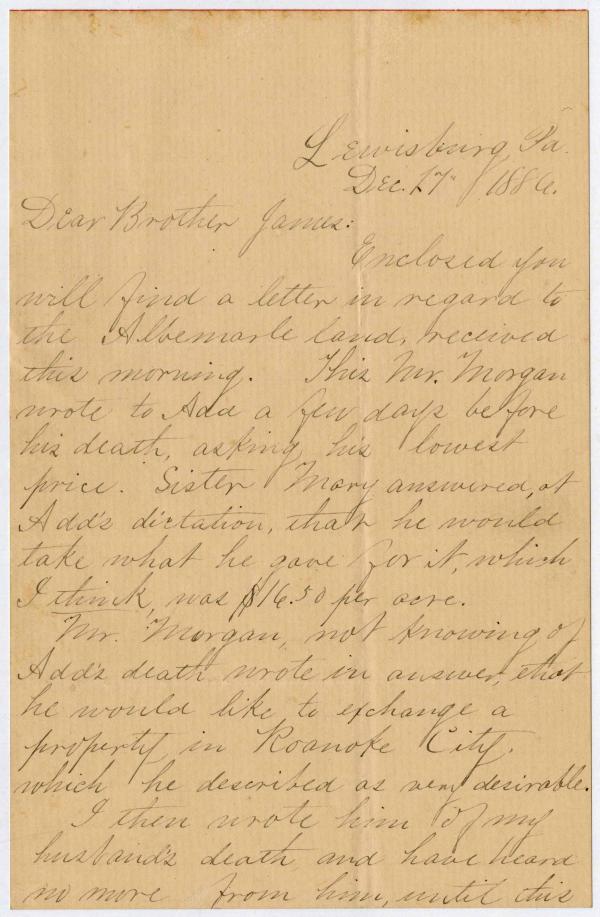 Lewisburg, Pa.
Dec. 17" 1886.
Dear Brother James:
Enclosed you
will find a letter in regard to
the Albemarle land, received
this morning. This Mr. Morgan
wrote to Add a few days before
his death, asking his lowest
price. Sister Mary answered, at
Add's dictation, that he would
take what he gave for it, which
I think, was $16.50 per acre.
Mr. Morgan, not knowing of
Add's death wrote in answer, that
he would like to exchange a
property in Roanoke City,
which he described as very desirable.
I then wrote him of my
husband's death and have heard
no more from him, until this